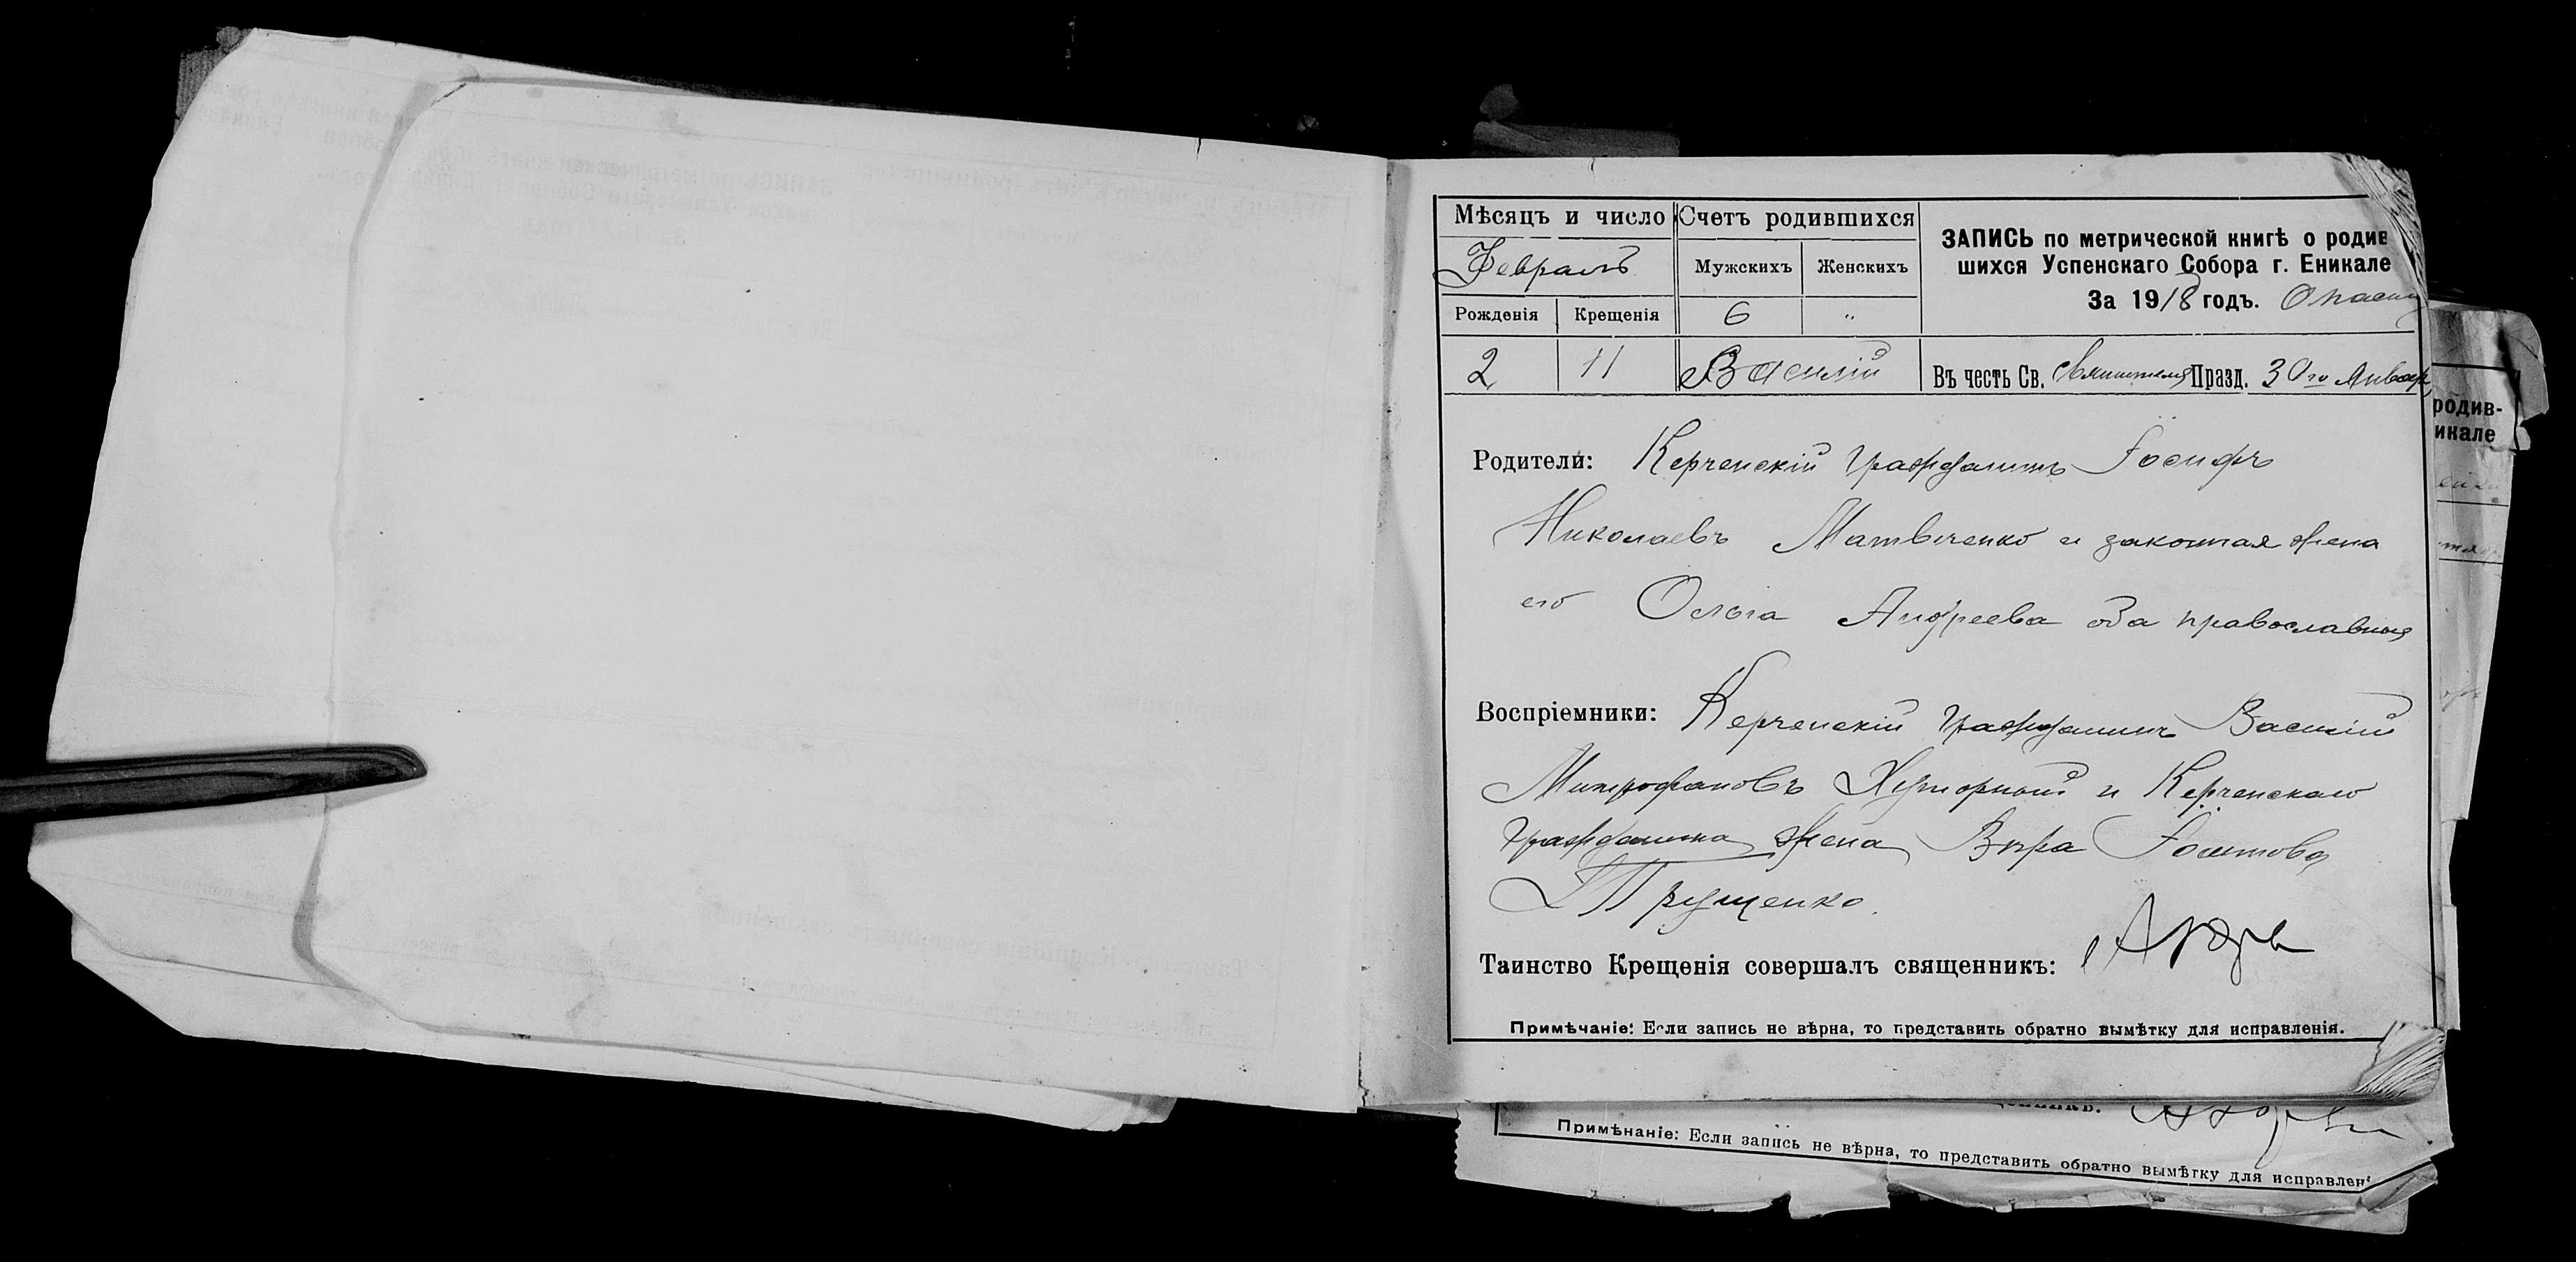 Мѣсяцъ и число
Счетъ родившихся
Февраль
Мужскихъ
Женскихъ
ЗАПИСЬ по метрической книгѣ о родив
шихся Успенскаго Собора г. Еникале
За 1918 годъ.
Рожденія
Крещенія
6
"
2
11
Василій
Въ честь Св. Святителя Празд. 30го Январ
Родители: Керченскій гражданинъ Іосифъ
Николаевъ Матвѣенко и законная жена
его Ольга Андреева оба православные
Воспріемники: Керченскій гражданинъ Василій
Митрофановъ Хуторный и Керченскаго
гражданина жена Вѣра
Грущенко.
Таинство Крещенія совершалъ священникъ:
Примѣчаніе: Если запись не вѣрна, то представить обратно вымѣтку для исправленія.
родив-
икале
Примѣнаніе: Если запись не вѣрна, то представить обратно вымѣтку для исправлені